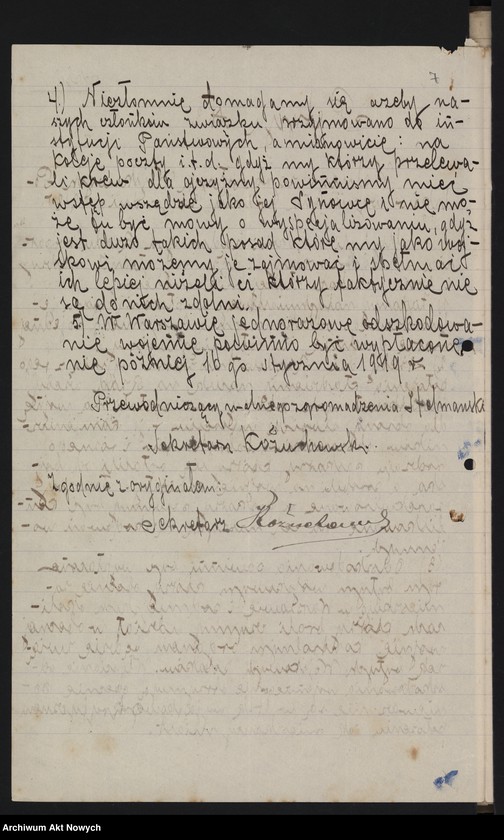 7
4) Niezłomnie domagamy się ażeby na-
szych członków związku przyjmowano do in-
stytucji Państwowych, a mianowicie: na
koleje poczty i.t.d. gdyż my którzy przelewa-
li krew dla ojczyzny powinniśmy mieć
wstęp wszędzie jako jej Synowie i nie mo-
że tu być mowy o wyspecjalizowaniu, gdyż
jest dużo takich posad które my jako woj-
skowi możemy je zajmować i spełniać
ich lepiej niżeli ci którzy faktycznie nie
są do nich zdolni.
5) W Warszawie jednorazowe odszkodowa-
nie wojenne powinno być wypłacone
nie później 16 go stycznia 1919 r.
Przewodniczący walnego zgromadzenia Stelmański
Sekretarz Kożuchowski.
Zgodnie z oryginałem:
Sekretarz Kożuchowski
Archiwum Akt Nowych